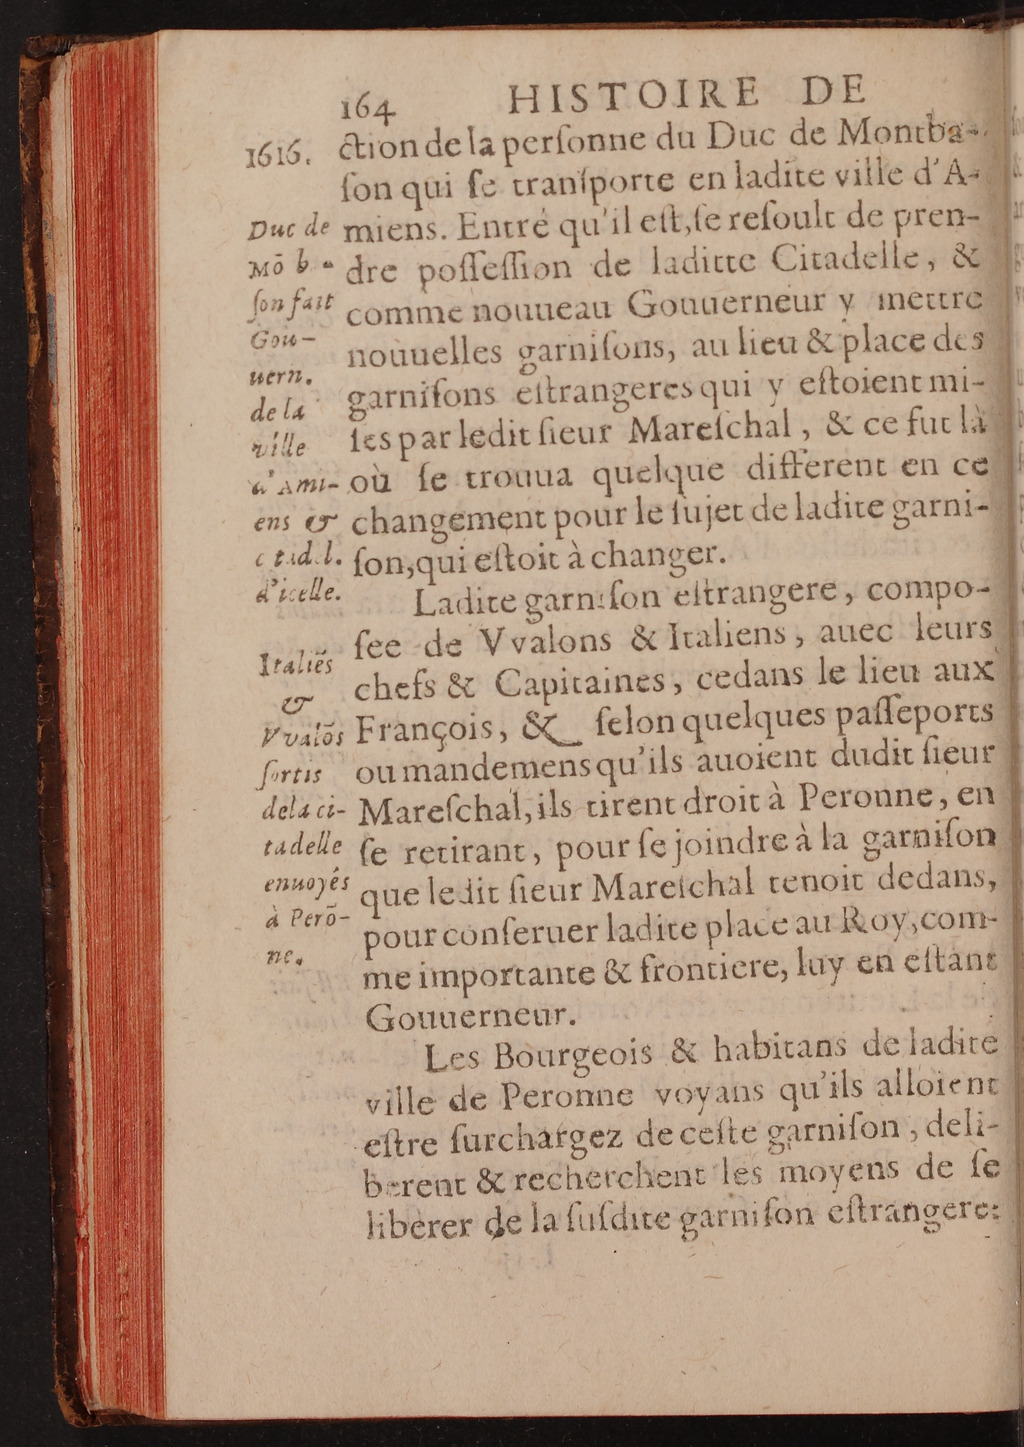 164 HISTOIRE DE
1616.
ction de la perſonne du Duc de Montba-
ſon qui ſe tranſporte en ladite ville d'A-
miens. Entré qu'il eſt, ſe reſoult de pren-
dre poſſeſſion de laditte Citadelle, &
comme nouueau Gouuerneur y mettre
nouuelles garniſons, au lieu & place des
garniſons eſtrangeres qui y eſtoient mi-
ſes par ledit ſieur Mareſchal, & ce fut là
où ſe trouua quelque different en ce
changement pour le ſujet de ladite garni-
ſon, qui eſtoit à changer.
Ladite garniſon eſtrangere, compo-
ſee de Vvalons & Italiens, auec leurs
chefs & Capitaines, cedans le lieu aux
François, & ſelon quelques paſſeports
ou mandemens qu'ils auoient dudit ſieur
Mareſchal, ils tirent droit à Peronne, en
ſe retirant, pour ſe joindre à la garniſon
que ledit ſieur Mareſchal tenoit dedans,
pour conſeruer ladite place au Roy, com-
me importante & frontiere, luy en eſtant
Gouuerneur.
Les Bourgeois & habitans de ladite
ville de Peronne voyans qu'ils alloient
eſtre ſurchargez de ceſte garniſon, deli-
berent & recherchent les moyens de ſe
liberer de la ſuſdite garniſon eſtrangere:
Duc de
Mõ b
ſon fait
Gou-
uern.
de la
ville
d'Ami-
ens &
citad.l.
d'icelle.
Italiẽs
&
Vvalõs
ſortis
de la ci-
tadelle
enuoyés
à Perõ-
ne.